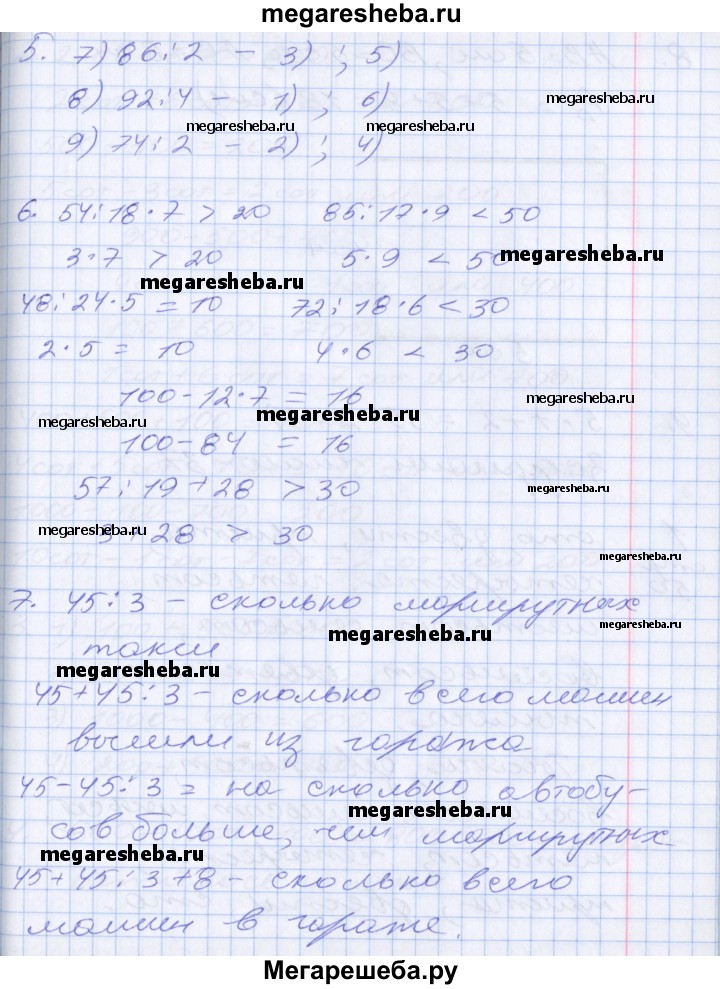 megaresheba.ru
5. 7) 86:2 - 3) ; 5)
8) 92:4 - 1) ; 6)
megaresheba.ru
megaresheba.ru megaresheba.ru
9) 74:2 - 2) ; 4)
6. 54:18·7 > 20 85:17·9 < 50
3·7 > 20 5·9 < 50
megaresheba.ru
megaresheba.ru
48:24·5 = 10 72:18·6 < 30
2·5 = 10 4·6 < 30
100-12·7 = 16
megaresheba.ru megaresheba.ru megaresheba.ru
100-84 = 16
57:19+28 > 30
megaresheba.ru
megaresheba.ru
3+28 > 30
megaresheba.ru
7. 45:3 - сколько маршрутных
megaresheba.ru
megaresheba.ru
такси
megaresheba.ru
45+45:3 - сколько всего машин
вышли из гаража
45-45:3 = на сколько автобу-
megaresheba.ru
сов больше, чем маршрутных
megaresheba.ru
45+45:3+8 - сколько всего
машин в гараже.
Мегарешеба.ру